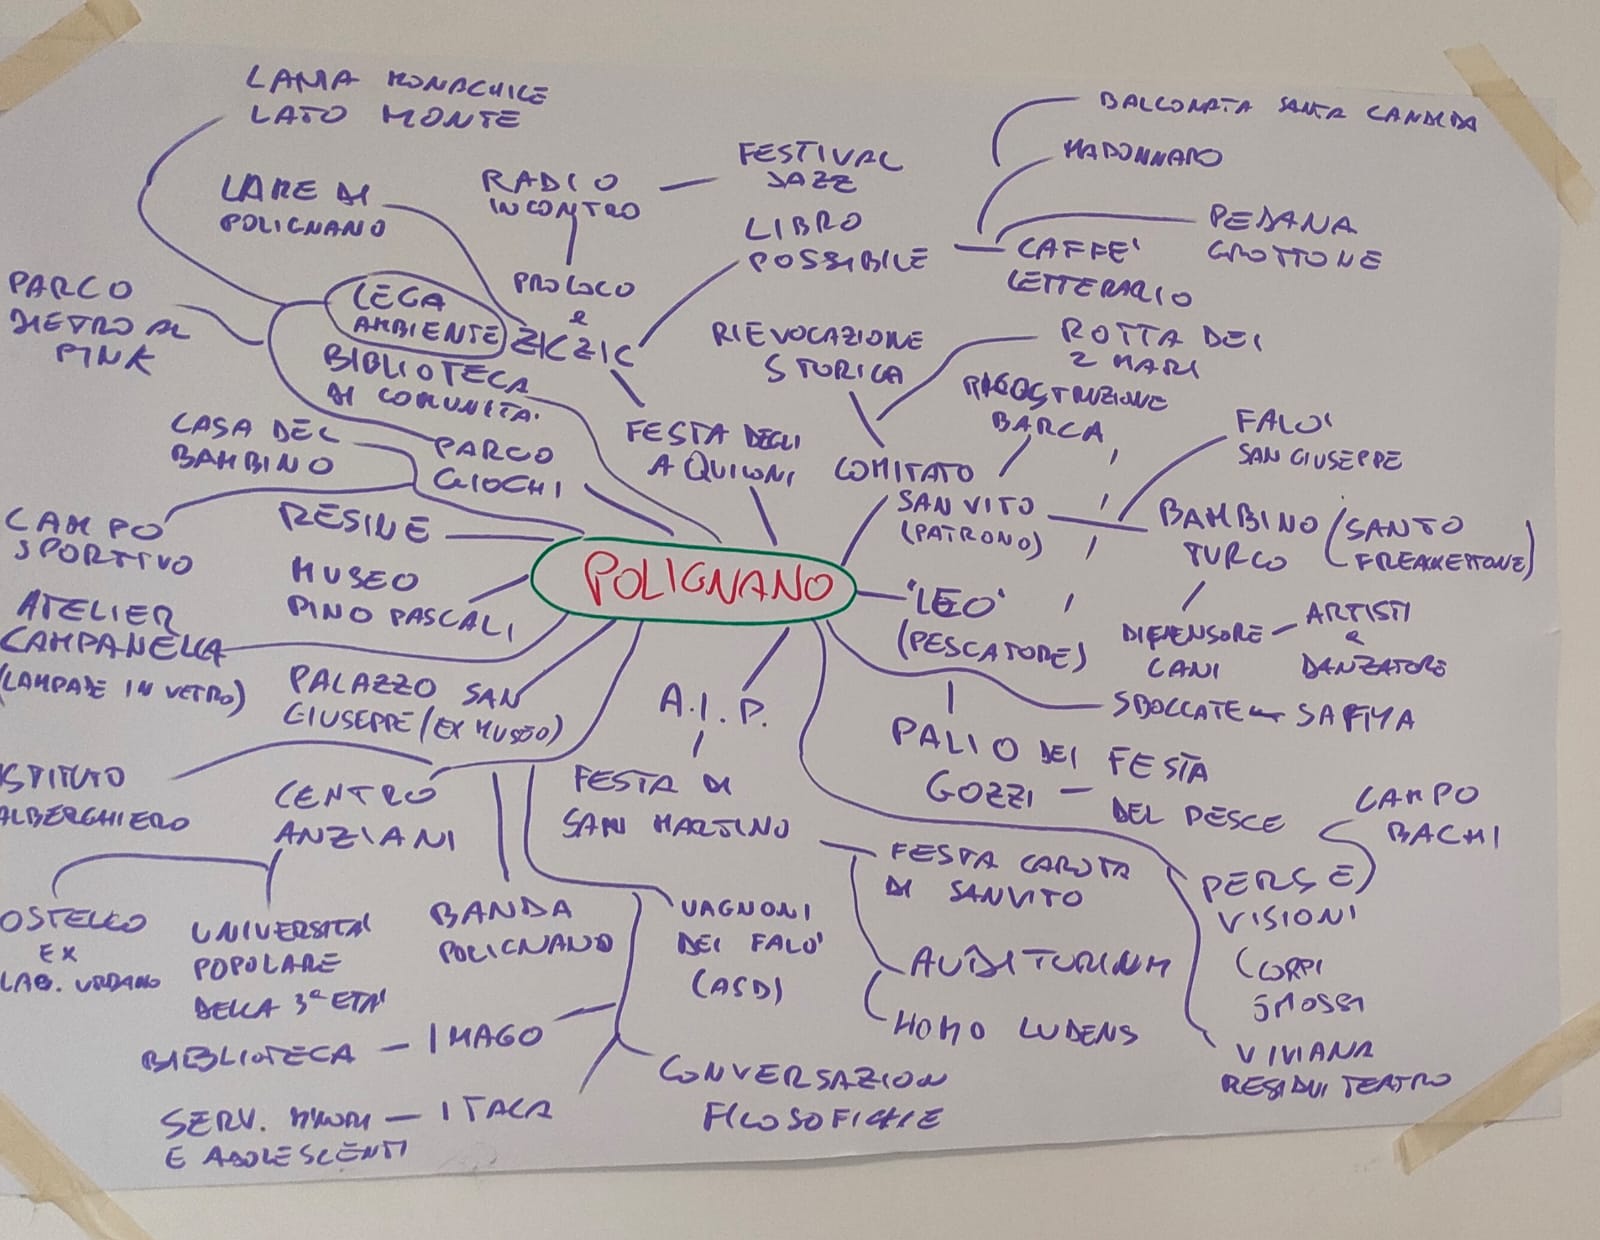 LAMA MONACHILE
LATO MONTE
BALCONATA SANTA CANDIDA
MADONNARO
FESTIVAL
JAZZ
RADIO
INCONTRO
LARE DI
POLIGNANO
LIBRO
POSSIBILE
PEDANA
GROTTONE
CAFFE'
LETTERARIO
PROLOCO
e
ZICZIC
LEGA
AMBIENTE
PARCO
DIETRO AL
PINK
RIEVOCAZIONE
STORICA
ROTTA DEI
2 MARI
BIBLIOTECA
DI COMUNITA'
RICOSTRUZIONE
BARCA
FALO'
SAN GIUSEPPE
CASA DEL
BAMBINO
PARCO
GIOCHI
FESTA DEGLI
AQUILONI
COMITATO
SAN VITO
(PATRONO)
BAMBINO
TURCO
(SANTO
FREAKKETTONE)
CAMPO
SPORTIVO
RESINE
MUSEO
PINO PASCALI
POLIGNANO
'LEO'
(PESCATORE)
DIFENSORE
CANI
ARTISTI
e
DANZATORE
ATELIER
CAMPANELLA
(LAMPADE IN VETRO)
PALAZZO SAN
GIUSEPPE/(EX MUSEO)
A.I.P.
SBOCCATE SAFIYA
PALIO DEI
GOZZI
FESTA
DEL PESCE
ISTITUTO
ALBERGHIERO
CENTRO
ANZIANI
FESTA DI
SAN MARTINO
CAMPO
BACHI
FESTA CAROTA
DI SANVITO
PERSE
VISIONI
OSTELLO
EX
LAB. URBANO
UNIVERSITA'
POPOLARE
DELLA 3ª ETA'
BANDA
POLIGNANO
VAGNONI
DEI FALO'
(ASD)
AUDITURIUM
CORPI
SMOSSI
HOMO LUDENS
BIBLIOTECA - IMAGO
VIVIANA
RESIDUI TEATRO
CONVERSAZIONI
FILOSOFICHE
SERV. MINORI - ITACA
E ADOLESCENTI